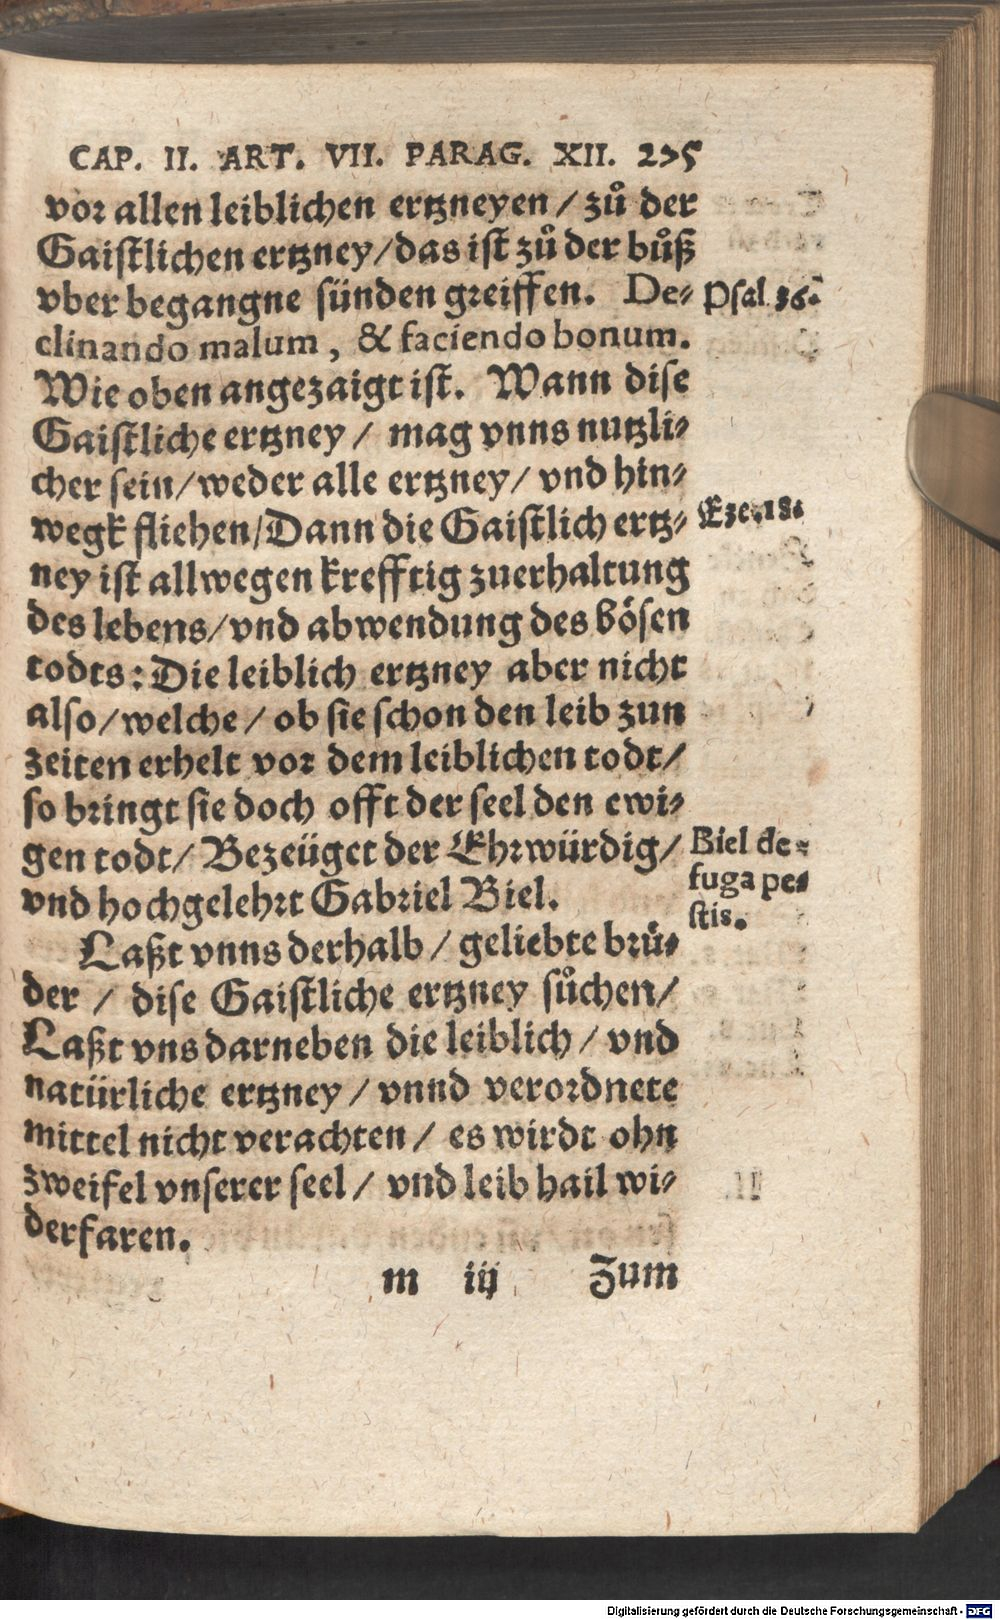 CAP. II. ART. VII. PARAG. XII. 275
vor allen leiblichen ertzneyen / zů der
Gaistlichen ertzney/das ist zů der bůß
vber begangne sünden greiffen. De-
Psal. 36.
clinando malum, & faciendo bonum.
Wie oben angezaigt ist. Wann dise
Gaistliche ertzney / mag vnns nutzli-
cher sein/weder alle ertzney/ vnd hin-
wegk fliehen/Dann die Gaistlich ertz-
Eze. 18.
ney ist allwegen krefftig zuerhaltung
des lebens/vnd abwendung des bösen
todts: Die leiblich ertzney aber nicht
also/welche/ ob sie schon den leib zun
zeiten erhelt vor dem leiblichen todt/
so bringt sie doch offt der seel den ewi-
gen todt/ Bezeüget der Ehrwürdig/
vnd hochgelehrt Gabriel Biel.
Biel de
fuga pe-
stis.
Laßt vnns derhalb / geliebte brů-
der / dise Gaistliche ertzney sůchen/
Laßt vns darneben die leiblich / vnd
natürliche ertzney / vnnd verordnete
mittel nicht verachten / es wirdt ohn
zweifel vnserer seel / vnd leib hail wi-
derfaren.
m iij Zum
Digitalisierung gefördert durch die Deutsche Forschungsgemeinschaft - DFG